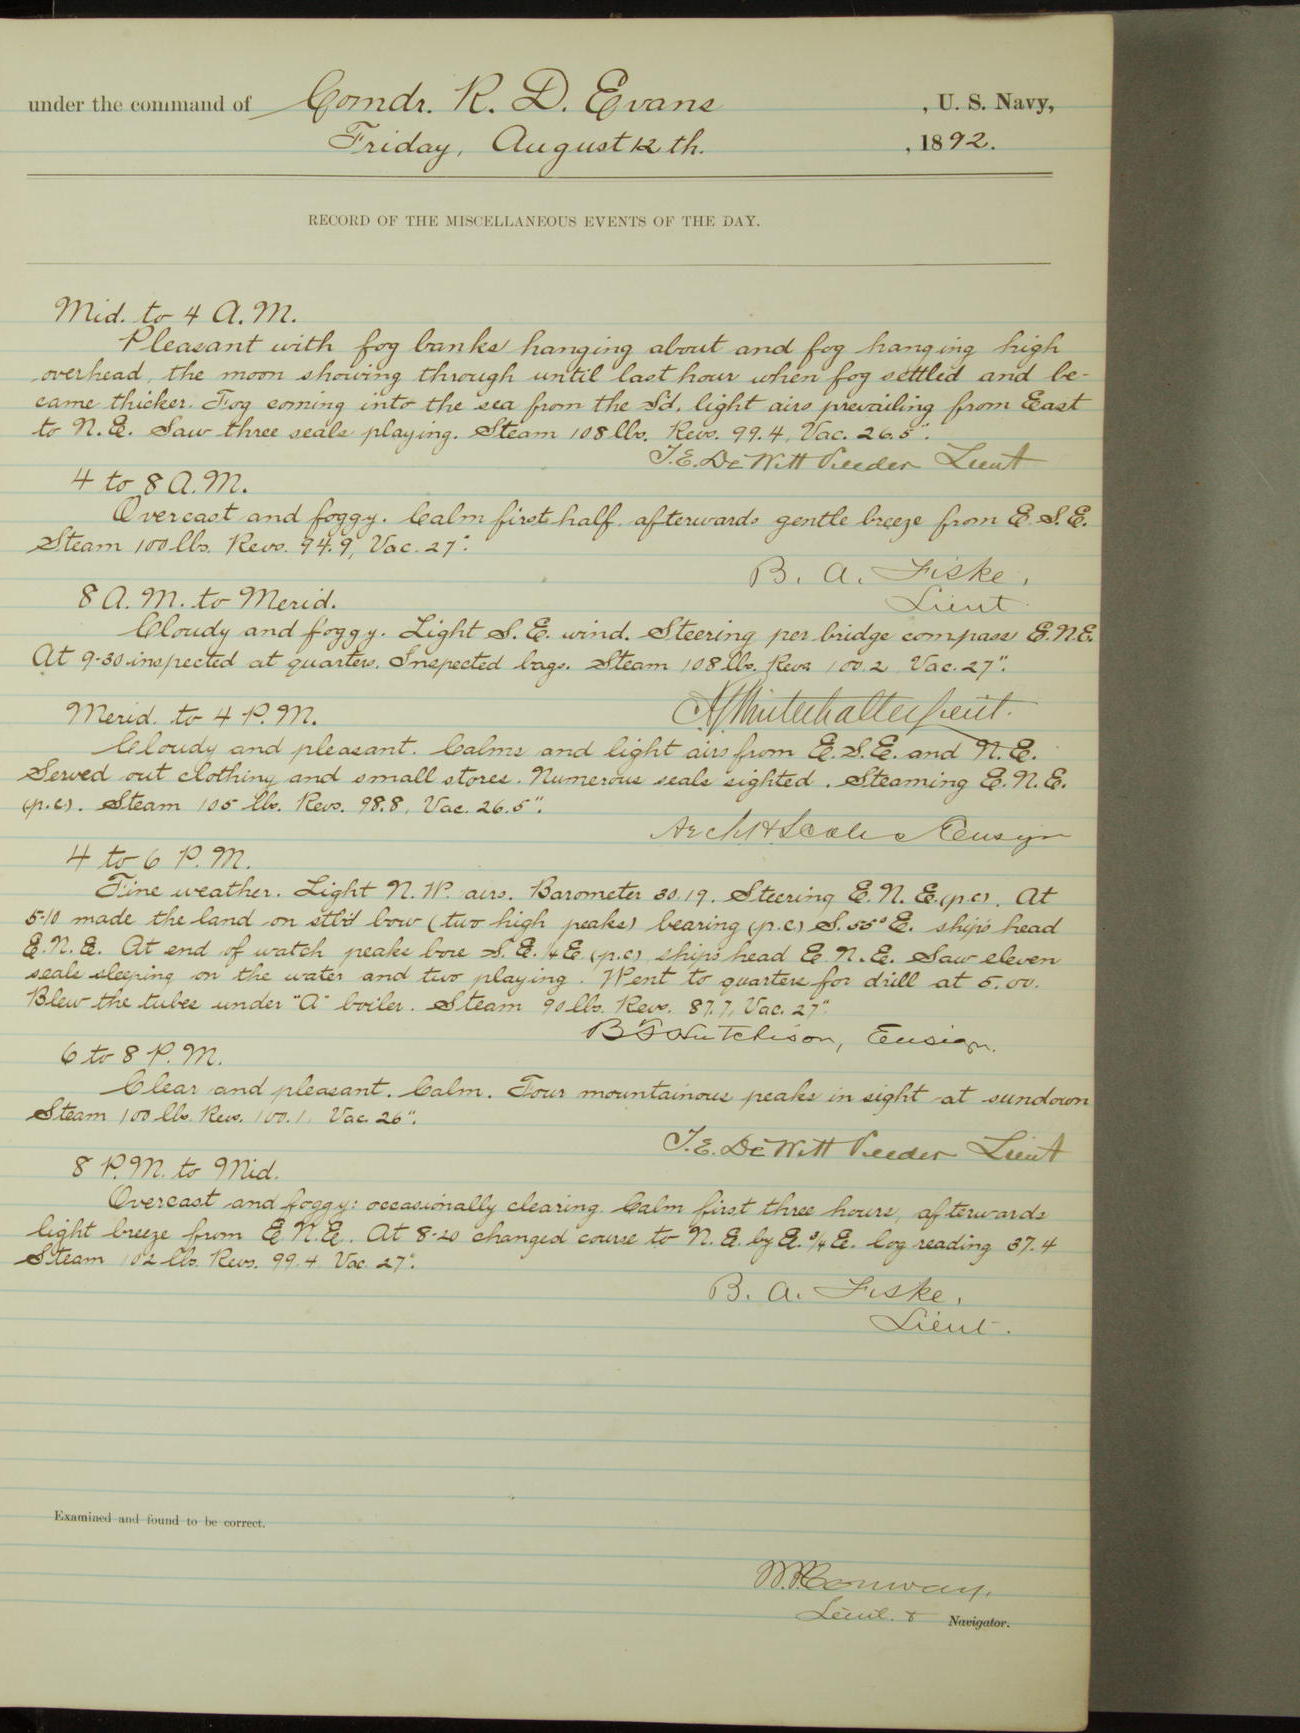 under the command of Comdr. R. D. Evans , U. S. Navy,
Friday, August 12th. , 1892.
RECORD OF THE MISCELLANEOUS EVENTS OF THE DAY.
Mid. to 4 A.M.
Pleasant with fog banks hanging about and fog hanging high
overhead, the moon showing through until last hour when fog settled and be-
came thicker. Fog coming into the sea from the Sd, light airs prevailing from East
to N.E. Saw three seals playing. Steam 108 lbs. Revs. 99.4, Vac. 26.5".
T.E. DeWitt Veeder Lieut
4 to 8 A.M.
Overcast and foggy. Calm first half, afterwards gentle breeze from E.S.E.
Steam 100 lbs. Revs. 94.9, Vac. 27".
B. A. Fiske,
Lieut.
8 A.M. to Merid.
Cloudy and foggy. Light S.E. wind. Steering per bridge compass E.N.E.
At 9-30 inspected at quarters. Inspected bags. Steam 108 lbs. Revs 100.2 Vac. 27".
Winterhalter Lieut.
Merid. to 4 P.M.
Cloudy and pleasant. Calms and light airs from E.S.E. and N.E.
Served out clothing and small stores. Numerous seals sighted. Steaming E.N.E.
(p.c). Steam 105 lbs. Revs. 98.8, Vac. 26.5".
Arch H Scales Ensign
4 to 6 P.M.
Fine weather. Light N.W. airs. Barometer 30.19. Steering E.N.E. (p.c). At
5-10 made the land on stb'd bow (two high peaks) bearing (p.c) S. 55° E. ship's head
E.N.E. At end of watch peaks bore S.E. ¼ E. (p.c) ship's head E.N.E. Saw eleven
seals sleeping on the water and two playing. Went to quarters for drill at 5.00.
Blew the tubes under "A" boiler. Steam 90 lbs. Revs. 87.7, Vac. 27".
B F Hutchison, Ensign.
6 to 8 P.M.
Clear and pleasant. Calm. Four mountainous peaks in sight at sundown
Steam 100 lbs. Revs. 100.1, Vac. 26".
T.E. DeWitt Veeder Lieut
8 P.M. to Mid.
Overcast and foggy: occasionally clearing. Calm first three hours, afterwards
light breeze from E.N.E. At 8-20 changed course to N.E. by E. ¾ E. log reading 37.4
Steam 102 lbs. Revs. 99.4 Vac. 27".
B. A. Fiske,
Lieut.
Examined and found to be correct.
W.P. Conway,
Lieut. & Navigator.